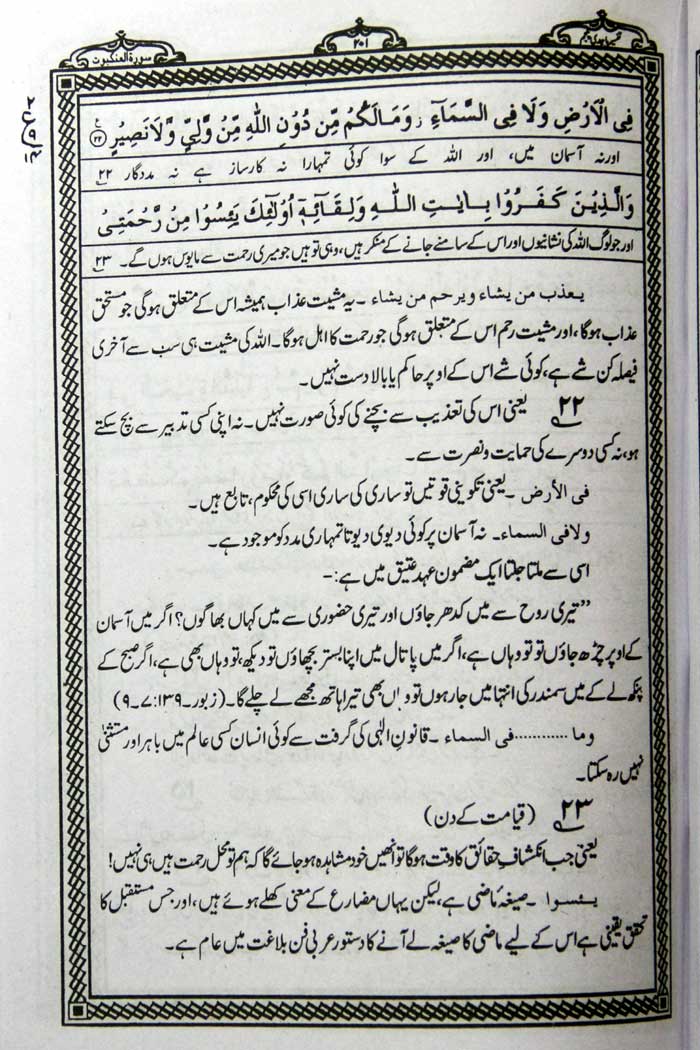 سورۃ العنکبوت
۲۰۱
فِی الْاَرْضِ وَلَا فِی السَّمَآءِ ؗ وَمَا لَکُمْ مِّنْ دُوْنِ اللّٰهِ مِنْ وَّلِیٍّ وَّلَا نَصِیْرٍ ۲۲
اور نہ آسمان میں، اور اللہ کے سوا کوئی تمہارا نہ کارساز ہے نہ مددگار ۲۲
وَالَّذِیْنَ کَفَرُوْا بِاٰیٰتِ اللّٰهِ وَلِقَآئِهٖٓ اُولٰٓئِكَ یَئِسُوْا مِنْ رَّحْمَتِیْ
اور جو لوگ اللہ کی نشانیوں اور اس کے سامنے جانے کے منکر ہیں، وہی تو ہیں جو میری رحمت سے مایوس ہوں گے۔ ۲۳
یعذب من یشاء ویرحم من یشاء ۔ یہ مشیت عذاب ہمیشہ اس کے متعلق ہوگی جو مستحق
عذاب ہوگا، اور مشیت رحم اس کے متعلق ہوگی جو رحمت کا اہل ہوگا۔ اللہ کی مشیت ہی سب سے آخری
فیصلہ کن شے ہے، کوئی شے اس کے اوپر حاکم یا بالا دست نہیں۔
۲۲ یعنی اس کی تعذیب سے بچنے کی کوئی صورت نہیں۔ نہ اپنی کسی تدبیر سے بچ سکتے
ہو، نہ کسی دوسرے کی حمایت و نصرت سے۔
فی الأرض ۔ یعنی تکوینی قوتیں تو ساری کی ساری اسی کی محکوم، تابع ہیں۔
ولا فی السماء۔ نہ آسمان پر کوئی دیوی دیوتا تمہاری مدد کو موجود ہے۔
اسی سے ملتا جلتا ایک مضمون عہد عتیق میں ہے:-
”تیری روح سے میں کدھر جاؤں اور تیری حضوری سے میں کہاں بھاگوں؟ اگر میں آسمان
کے اوپر چڑھ جاؤں تو تو وہاں ہے، اگر میں پاتال میں اپنا بستر بچھاؤں تو دیکھ، تو وہاں بھی ہے، اگر صبح کے
پنکھ لے کے میں سمندر کی انتہا میں جا رہوں تو وہاں بھی تیرا ہاتھ مجھے لے چلے گا۔ (زبور۔ ۱۳۹:۷۔۹)
وما ............ فی السماء ۔ قانونِ الٰہی کی گرفت سے کوئی انسان کسی عالم میں باہر اور مستثنیٰ
نہیں رہ سکتا۔
۲۳ (قیامت کے دن)
یعنی جب انکشافِ حقائق کا وقت ہوگا تو انھیں خود مشاہدہ ہو جائے گا کہ ہم تو محل رحمت ہیں ہی نہیں!
یئسوا ۔ صیغہ ماضی ہے، لیکن یہاں مضارع کے معنی کھلے ہوئے ہیں، اور جس مستقبل کا
تحقق یقینی ہے اس کے لیے ماضی کا صیغہ لے آنے کا دستور عربی فن بلاغت میں عام ہے۔